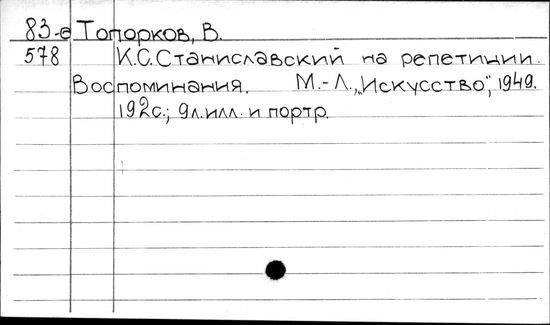 83-6 Топорков, В.
578 К.С. Станиславский на репетиции.
Воспоминания. М.-Л., „Искусство", 1949.
192с.; 9л.илл. и портр.